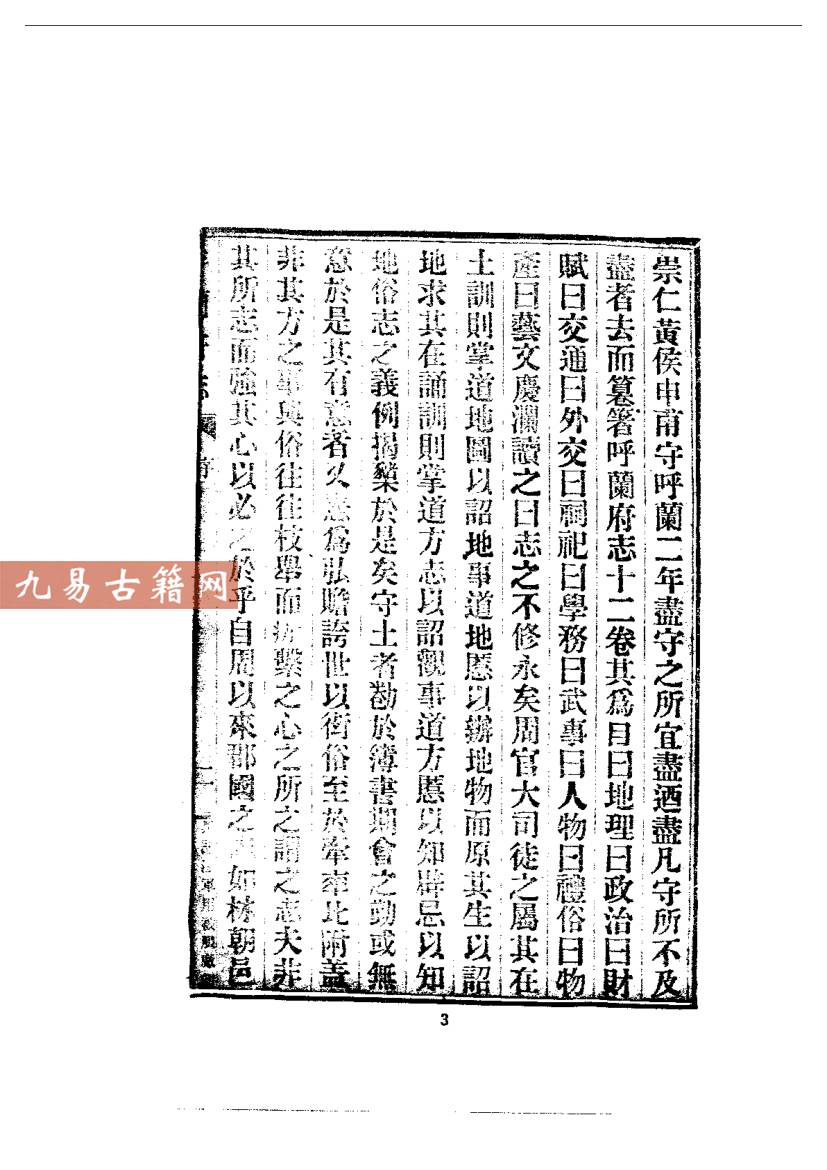 崇仁黃侯申甫守呼蘭二年盡守之所宜盡迺盡凡守所不及
盡者去而篹箸呼蘭府志十二卷其爲目曰地理曰政治曰財
賦曰交通曰外交曰祠祀曰學務曰武事曰人物曰禮俗曰物
產曰藝文慶瀾讀之曰志之不修永矣周官大司徒之屬其在
土訓則掌道地圖以詔地事道地慝以辦地物而原其生以詔
地求其在誦訓則掌道方志以詔觀事道方慝以知辟忌以知
地俗志之義例揭櫫於是矣守土者勌於簿書期會之勤或無
意於是其有意者又爲弘贍誇世以衒俗至於牽率比附盖
非其方之事與俗往往枝舉而繫之心之所之謂之志夫非
其所志而強其心以必之於乎自周以來郡國之如林朝邑
九易古籍网
3